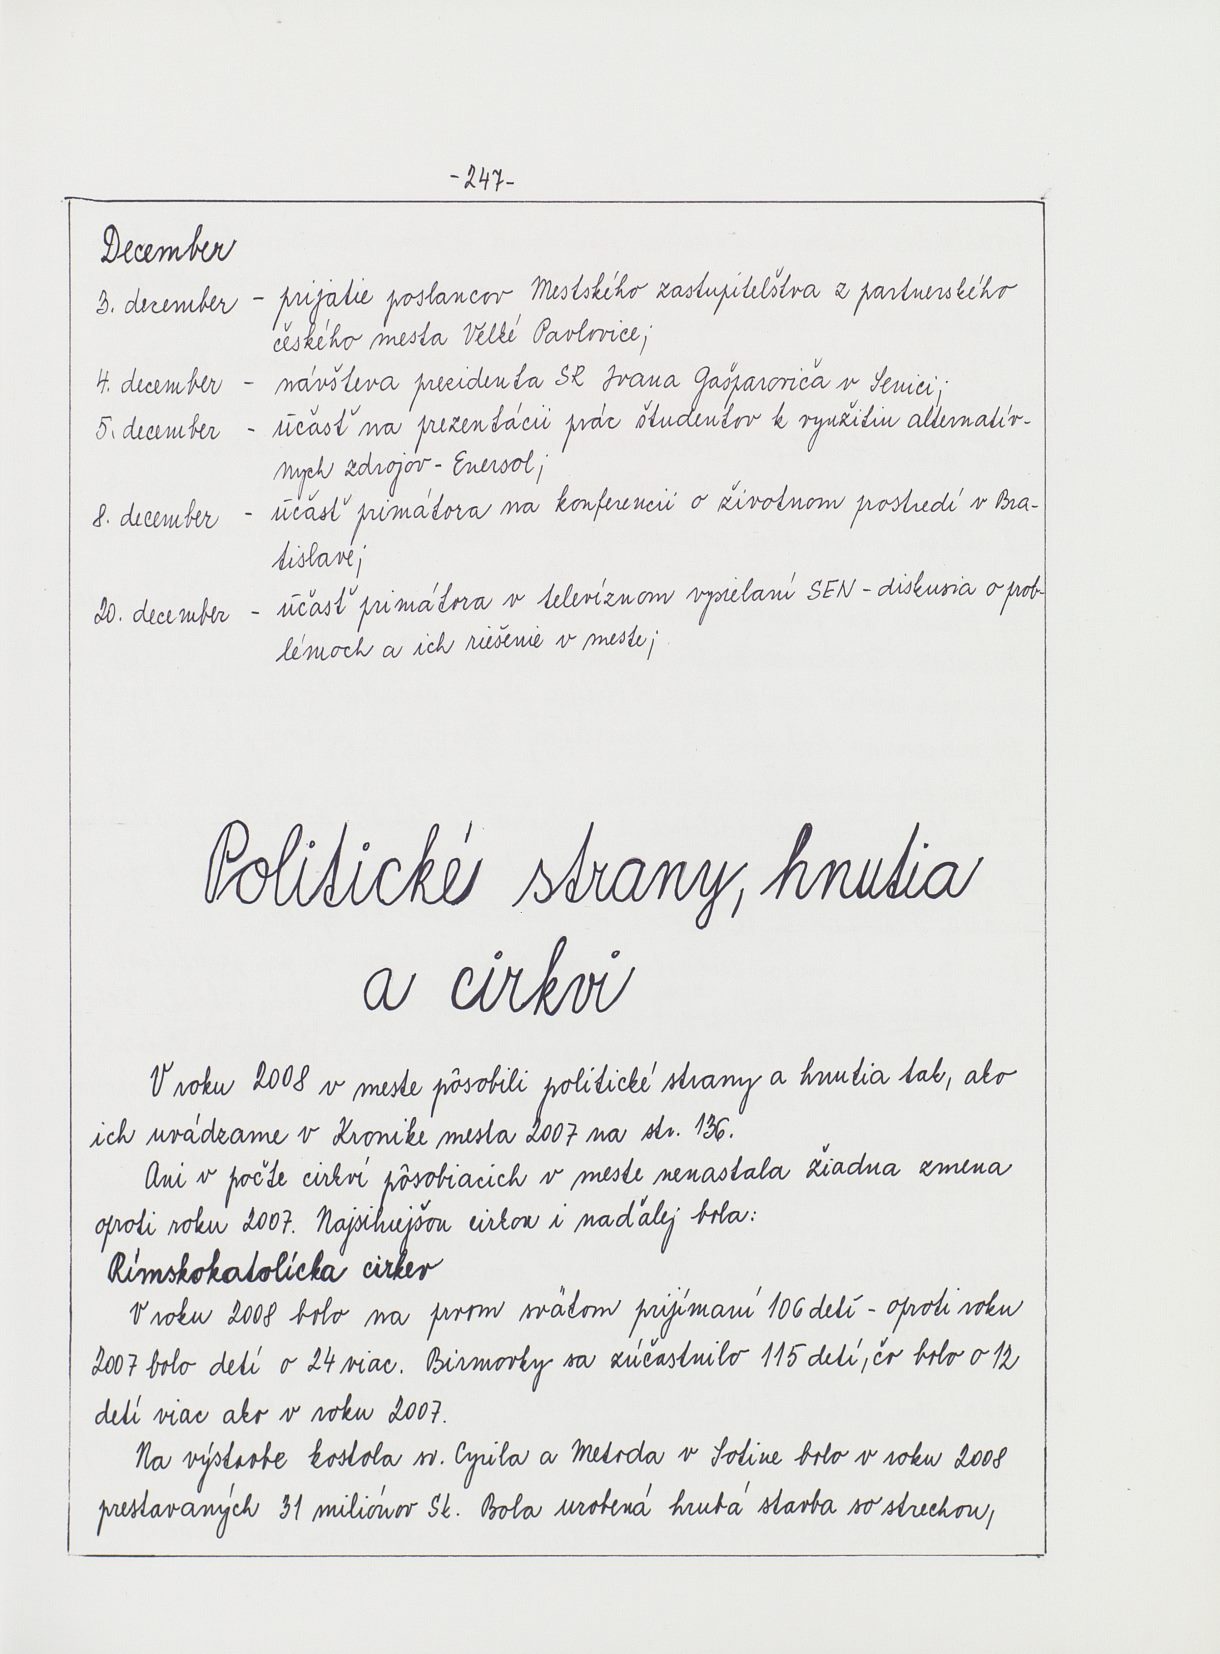 -247-
December
3. december - prijatie poslancov Mestského zastupiteľstva z partnerského
českého mesta Velké Pavlovice;
4. december - návšteva prezidenta SR Ivana Gašparoviča v Senici;
5. december - účasť na prezentácii prác študentov k využitiu alternatív-
nych zdrojov - Enersol;
8. december - účasť primátora na konferencii o životnom prostredí v Bra-
tislave;
20. december - účasť primátora v televíznom vysielaní SEN - diskusia o prob-
lémoch a ich riešenie v meste;
Politické strany, hnutia
a cirkvi
V roku 2008 v meste pôsobili politické strany a hnutia tak, ako
ich uvádzame v Kronike mesta 2007 na str. 136.
Ani v počte cirkví pôsobiacich v meste nenastala žiadna zmena
oproti roku 2007. Najsilnejšou cirkou i naďalej bola:
Rímskokatolícka cirkev
V roku 2008 bolo na prvom svätom prijímaní 106 detí - oproti roku
2007 bolo detí o 24 viac. Birmovky sa zúčastnilo 115 detí, čo bolo o 12
detí viac ako v roku 2007.
Na výstavbe kostola sv. Cyrila a Metoda v Sotine bolo v roku 2008
prestavaných 31 miliónov Sk. Bola urobená hrubá stavba so strechou,